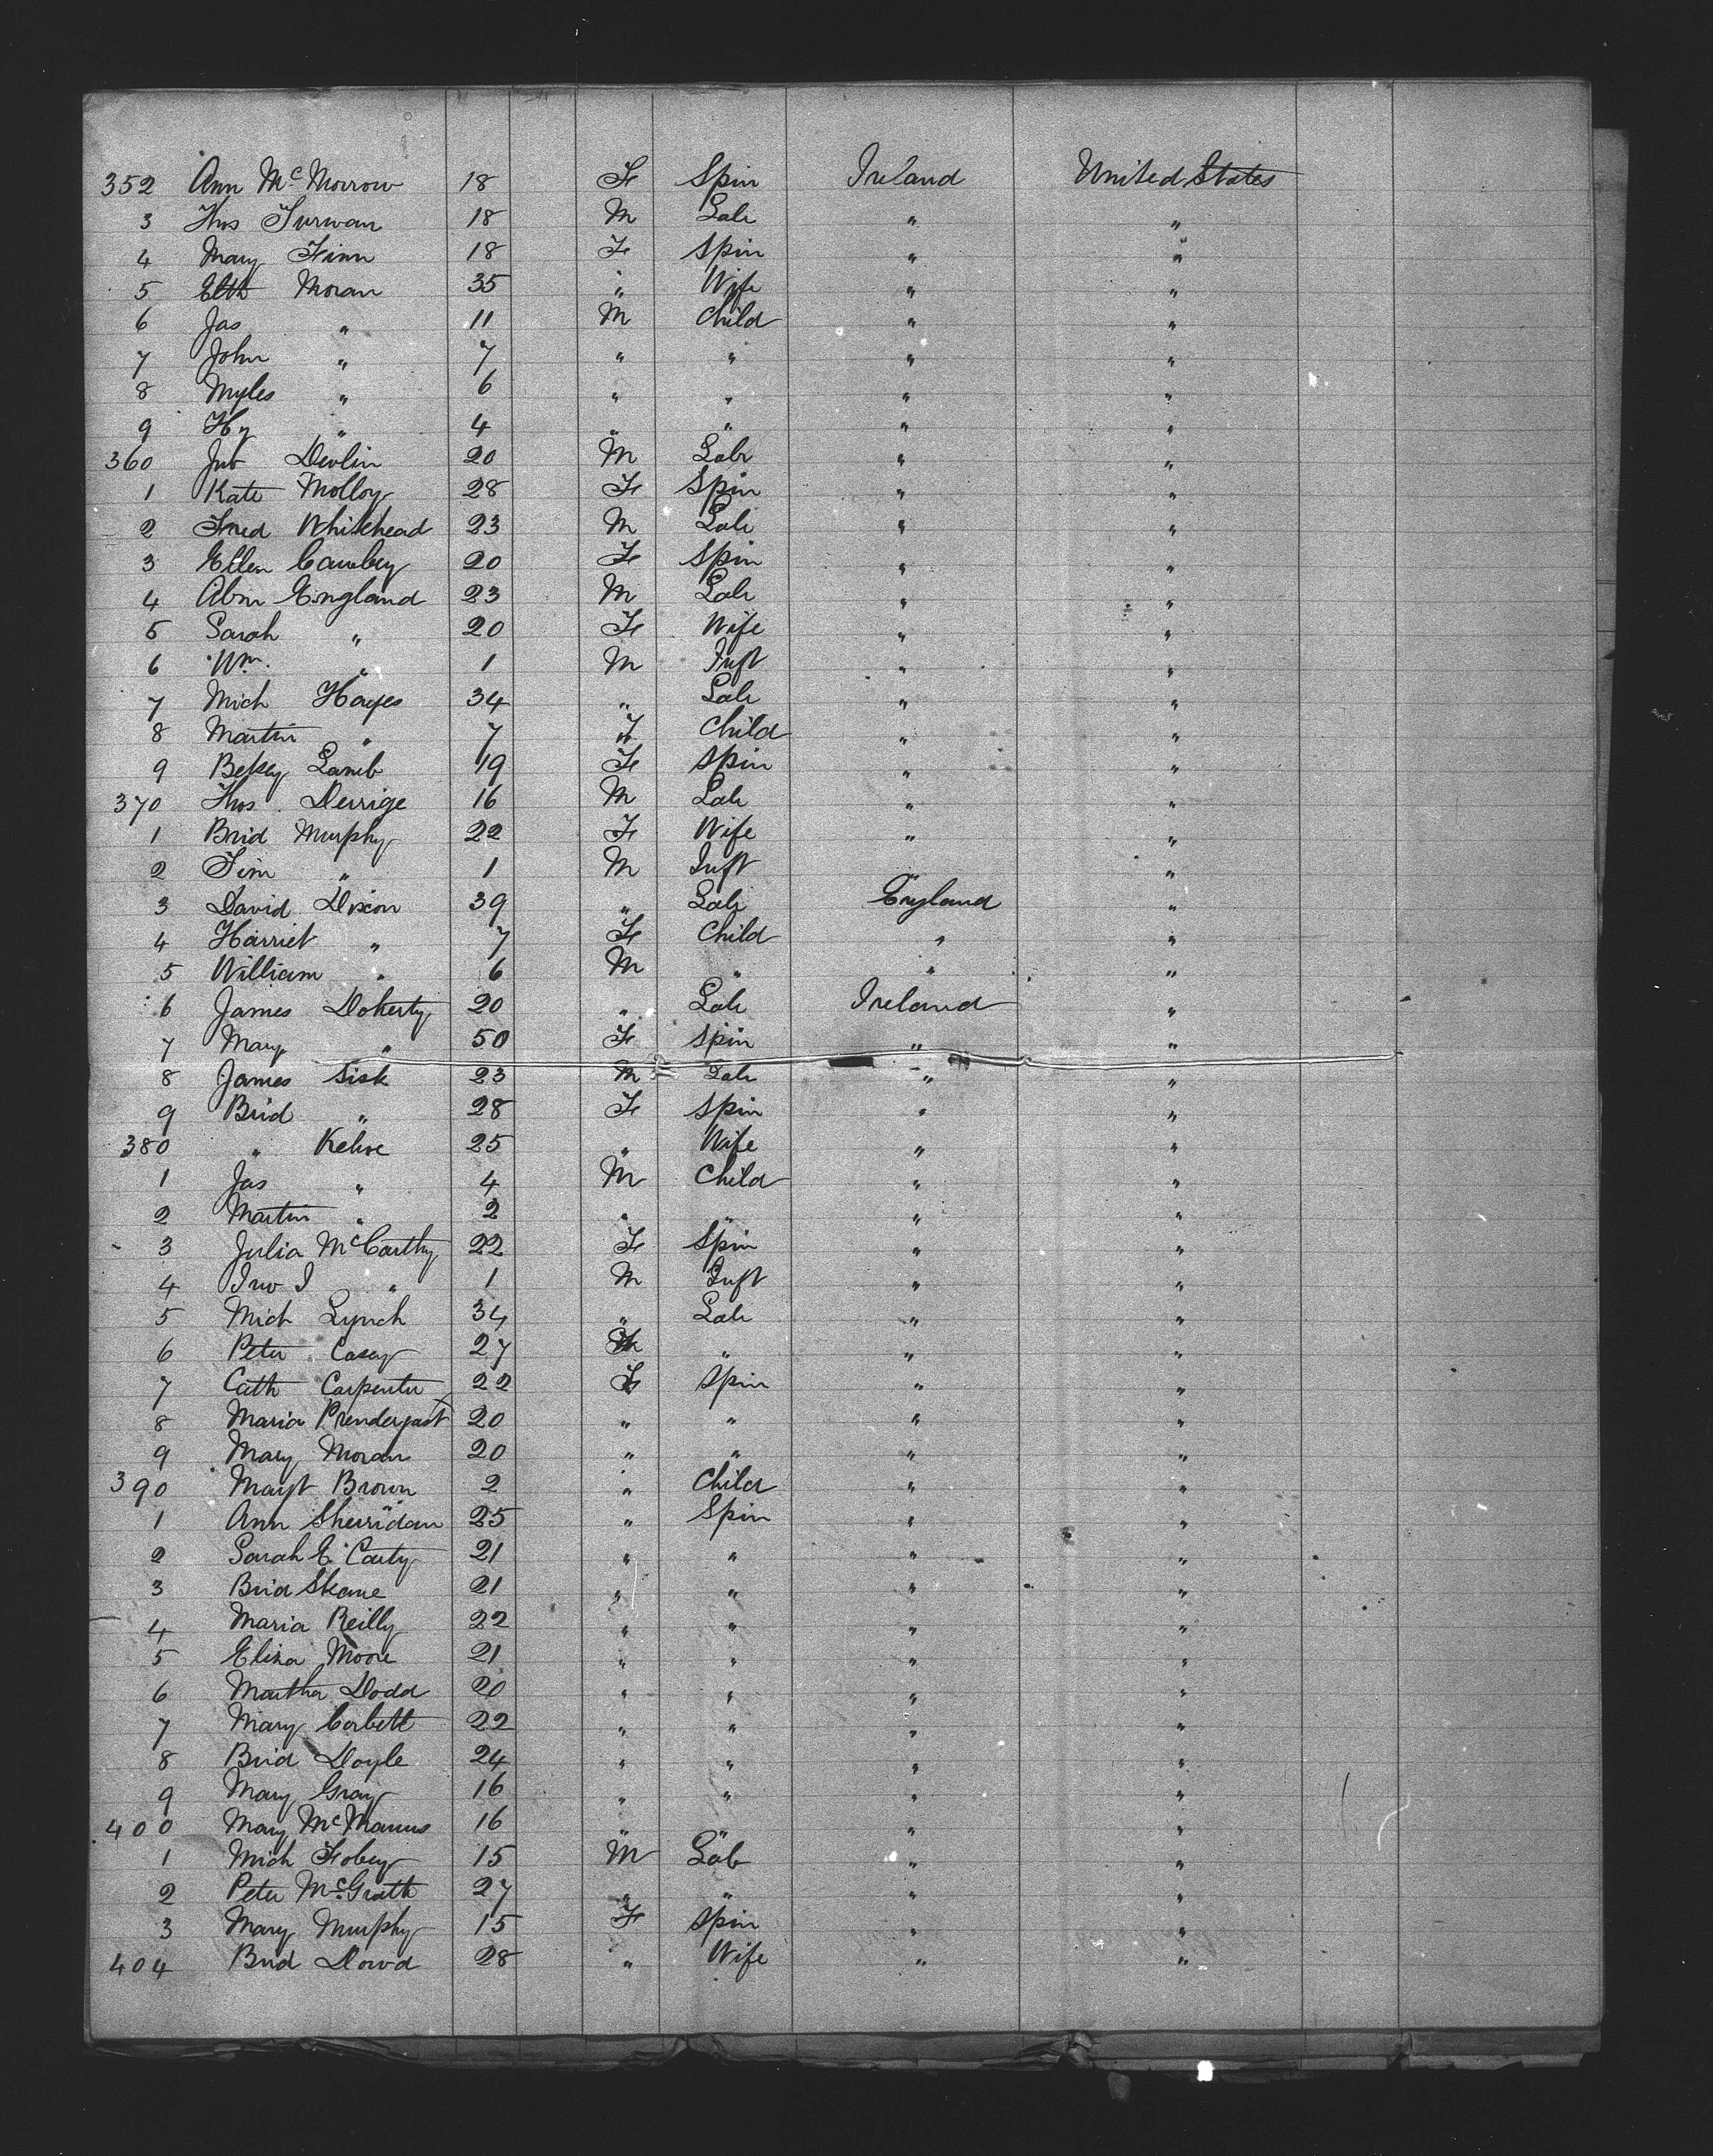 352 Ann McMorrow 18 F Spin Ireland United States
3 Thos Surwan 18 M Labr " "
4 Mary Finn 18 F Spin " "
5 Elth Moran 35 " Wife " "
6 Jas " 11 M Child " "
7 John " 7 " " " "
8 Myles " 6 " " " "
9 Hy " 4 " " " "
360 Jno Devlin 20 M Labr " "
1 Kate Molloy 28 F Spin " "
2 Fred Whitehead 23 M Labr " "
3 Ellen 20 F Spin " "
4 Abm England 23 M Labr " "
5 Sarah " 20 F Wife " "
6 Wm. " 1 M Inft " "
7 Mich Hayes 34 " Labr " "
8 Martin " 7 Child " "
9 Betsey Lamb 19 F Spin " "
370 Thos Derrige 16 M Labr " "
1 Brid Murphy 22 F Wife " "
2 Tim " 1 M Inft " "
3 David Dixon 39 " Labr England "
4 Harriet " 7 F Child " "
5 William " 6 M " " "
6 James Doherty 20 " Labr Ireland "
7 Mary " 50 F Spin " "
8 James Sisk 23 M Labr " "
9 Brid " 28 F Spin " "
380 " Kehoe 25 " Wife " "
1 Jas " 4 M Child " "
2 Martin " 2 " " " "
3 Julia McCarthy 22 F Spin " "
4 Jno J " 1 M Inft " "
5 Mich Lynch 34 " Labr " "
6 Peter Casey 27 " " "
7 Cath Carpenter 22 F Spin " "
8 Maria Prendergast 20 " " " "
9 Mary Moran 20 " " " "
390 Margt Brown 2 " Child " "
1 Ann Sherridan 25 " Spin " "
2 Sarah E Carty 21 " " " "
3 Brid Skane 21 " " " "
4 Maria Reilly 22 " " " "
5 Eliza Moore 21 " " " "
6 Martha Dodd 20 " " " "
7 Mary Corbett 22 " " " "
8 Brid Doyle 24 " " " "
9 Mary Gray 16 " " " "
400 Mary McManus 16 " " " "
1 Mich Tobey 15 M Lab " "
2 Peter McGrath 27 " " " "
3 Mary Murphy 15 F Spin " "
404 Brid Dowd 28 " Wife " "